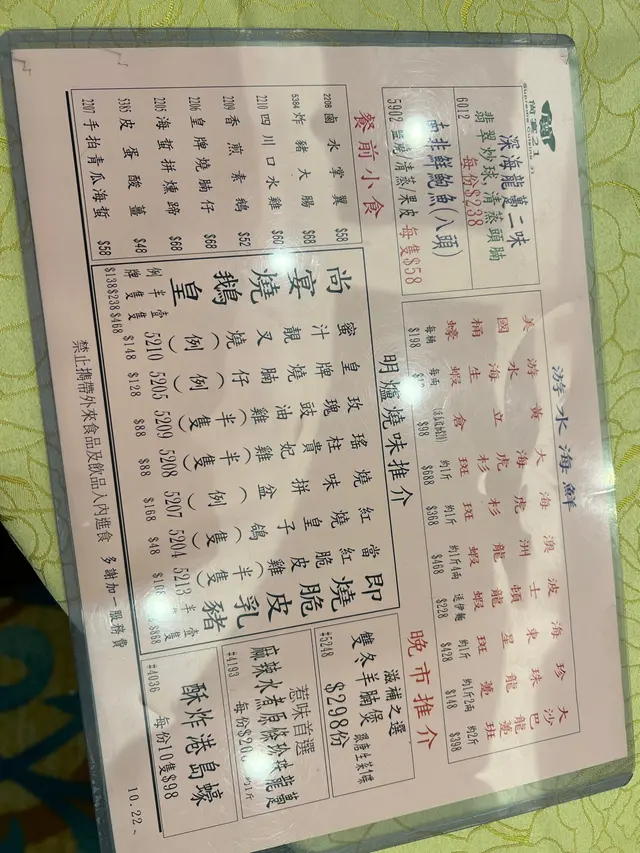 尚宴21
深海龍躉二味
翡翠炒球,清蒸頭腩
6012 每份$238
南非鮮鮑魚(八頭)
5902 監燒/清蒸果皮 每隻$58
游水海鮮
美國桶蠔 每桶 $198
游水海生蝦 每兩
黃立倉 $98
大海虎杉斑 約1斤 $688
海虎杉斑 約1斤 $368
澳洲龍蝦 約1斤4兩 $468
波士頓龍蝦 送伊麵 $228
海東星斑 約1斤 $428
珍珠龍躉 約1斤2兩 $148
大沙巴龍躉 約2斤 $398
餐前小食
2208 鹵水掌翼 $58
5384 炸豬大腸 $68
2210 四川口水雞 $60
2209 香煎素鵝 $52
2206 皇牌燒腩仔 $68
2205 海蜇拼燻蹄 $68
5385 皮蛋酸薑 $48
2207 手拍青瓜海蜇 $58
明爐燒味推介
尚宴燒鵝皇
例牌 半隻 壹隻
$138 $238 $468
蜜汁靚叉燒(例) 5210 $148
皇牌燒腩仔(例) 5205 $128
玫瑰豉油雞(半隻) 5209 $88
瑤柱貴妃雞(半隻) 5208 $88
燒味拼盆(例) 5207 $168
紅燒皇子鴿(隻) 5204 $48
當紅脆皮雞(半隻) 5213 $108
即燒脆皮乳豬
半隻 壹隻
$868
晚市推介
滋補之選
雙冬羊腩煲
#5248 $298份
惹味首選
麻辣水煮原條珍珠龍躉
#4193 每份 約1斤
酥炸港島蠔
#4036 每份10隻$98
禁止攜帶外來食品及飲品入內進食 多謝加一服務費
10.22~